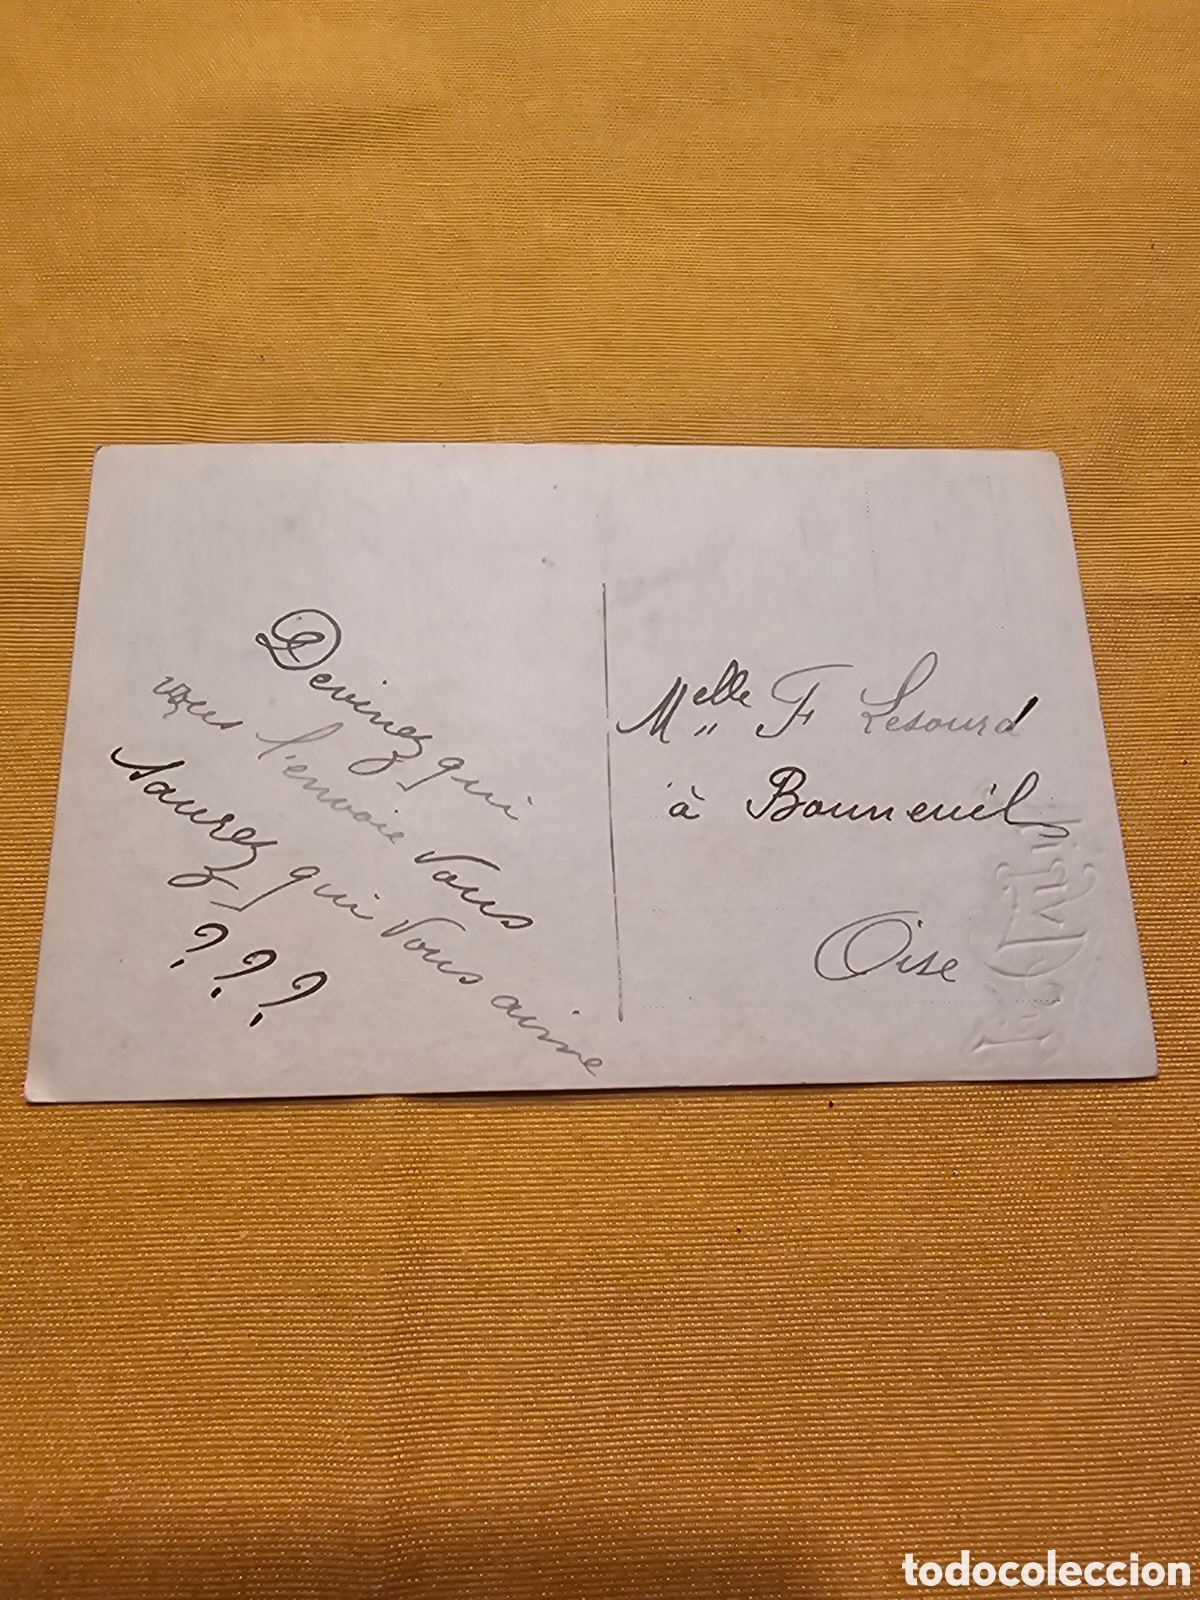 Devinez qui
vous l'envoie Vous
saurez qui Vous aime
???
Melle F Lesourd
à Bonneuil
Oise
todocoleccion